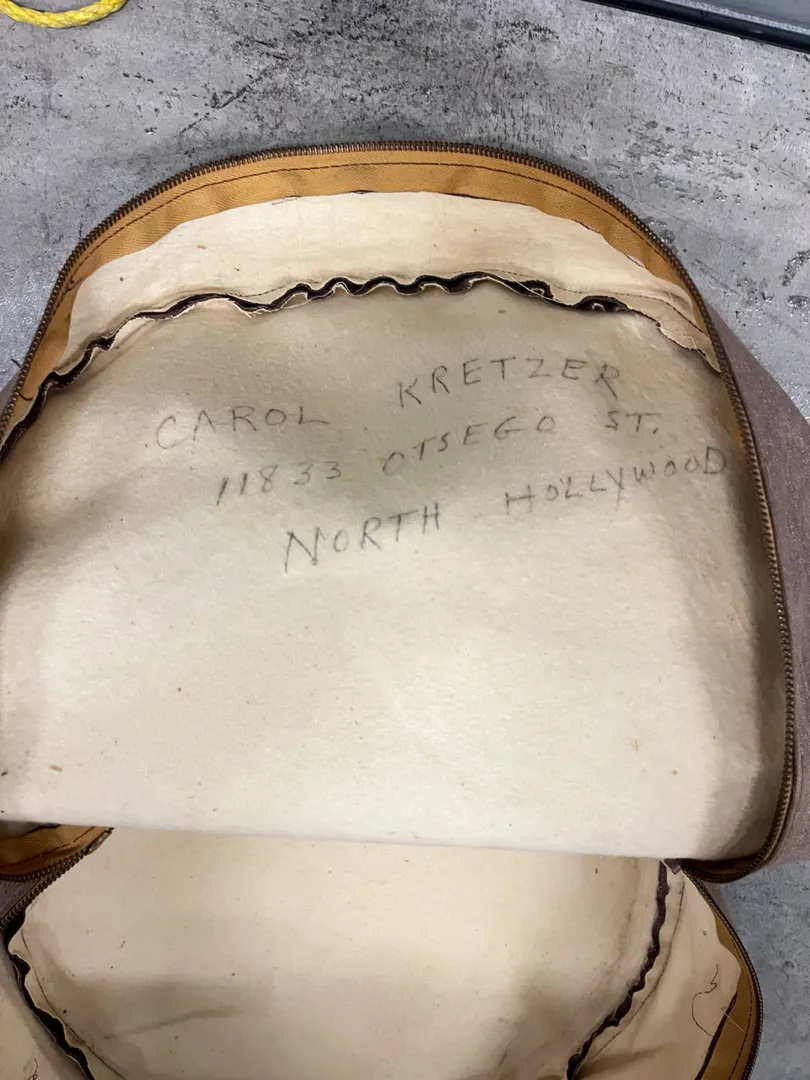 CAROL KRETZER
11833 OTSEGO ST.
NORTH HOLLYWOOD